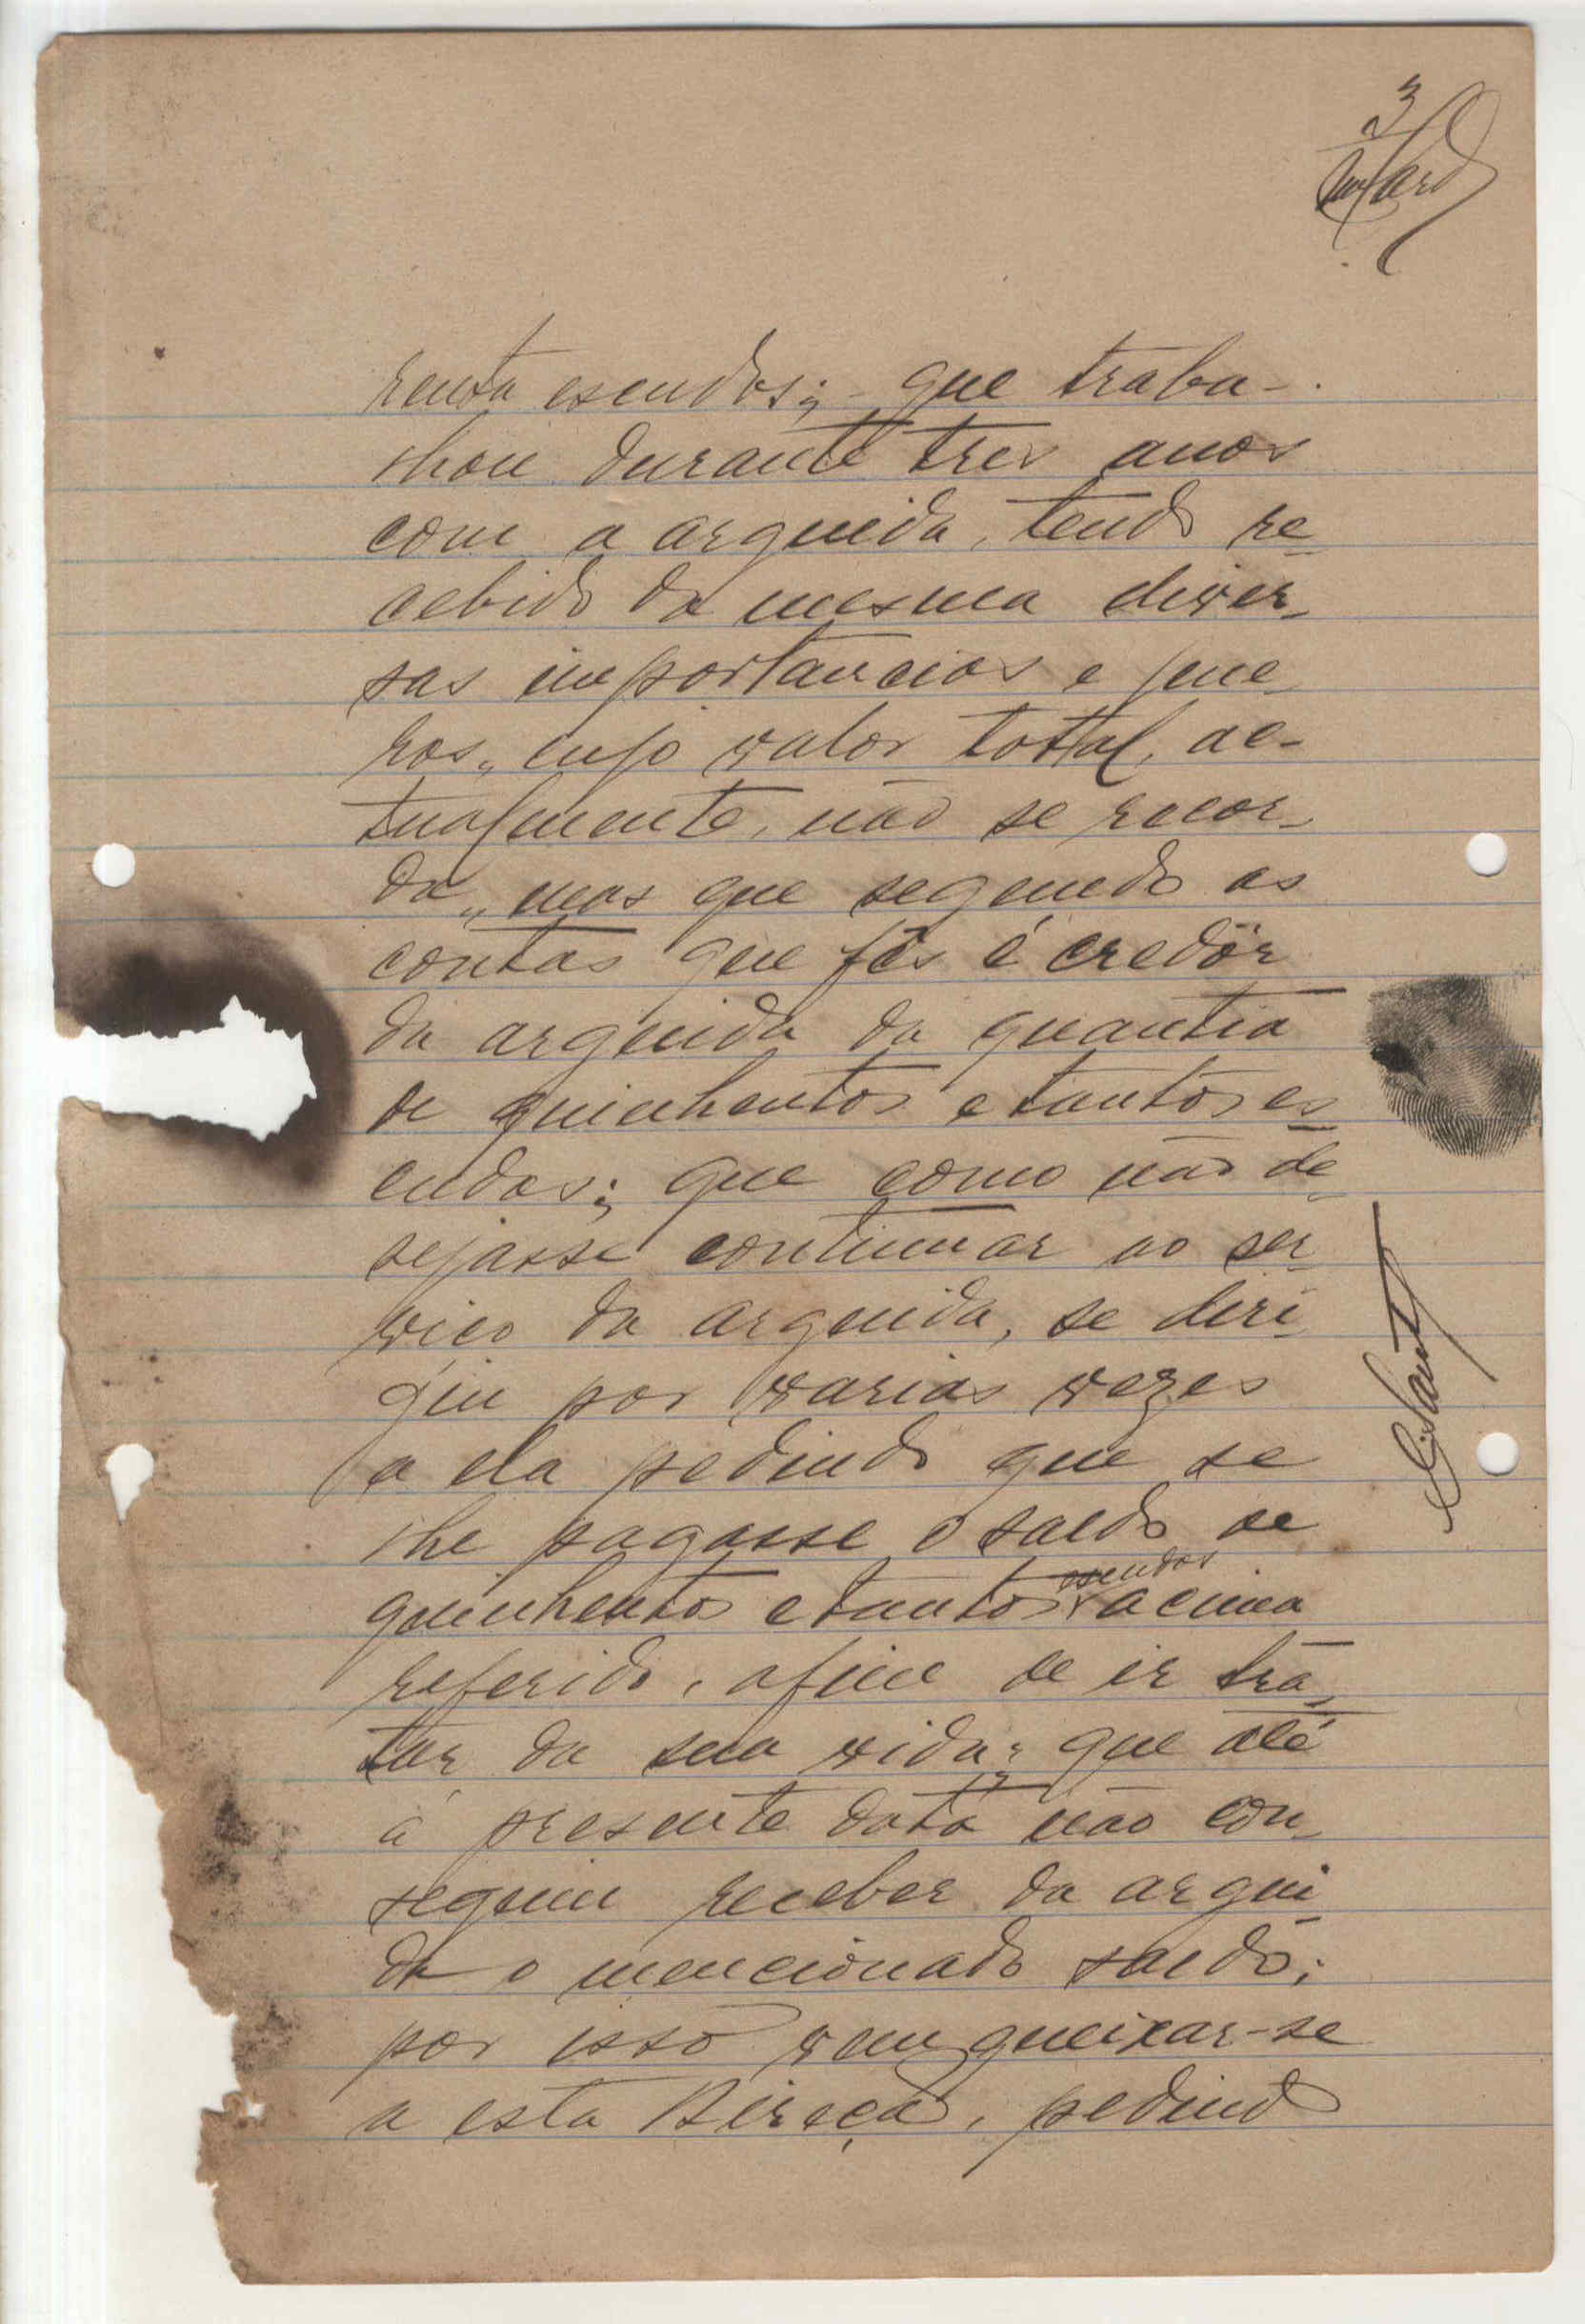 3
renta escudos; - que traba-
lhou durante tres anos
com a arguida, tendo re-
cebido da mesma diver-
sas importancias e gene-
ros, cujo valor total, ac-
tualmente, não se recor-
da, mas que segundo as
contas que fês é credôr
da arguida da quantia
de quinhentos e tantos es-
cudos; que como não de-
sejasse continuar ao ser-
viço da arguida, se diri-
giu por varias vezes
a ela pedindo que se
lhe pagasse o saldo de
escudos
quinhentos e tantos acima
referido, afim de ir tra-
tar da sua vida; que até
á presente data não con-
seguiu receber da argui-
da o mencionado saldo;
por isso vem queixar-se
a esta Direcção, pedindo